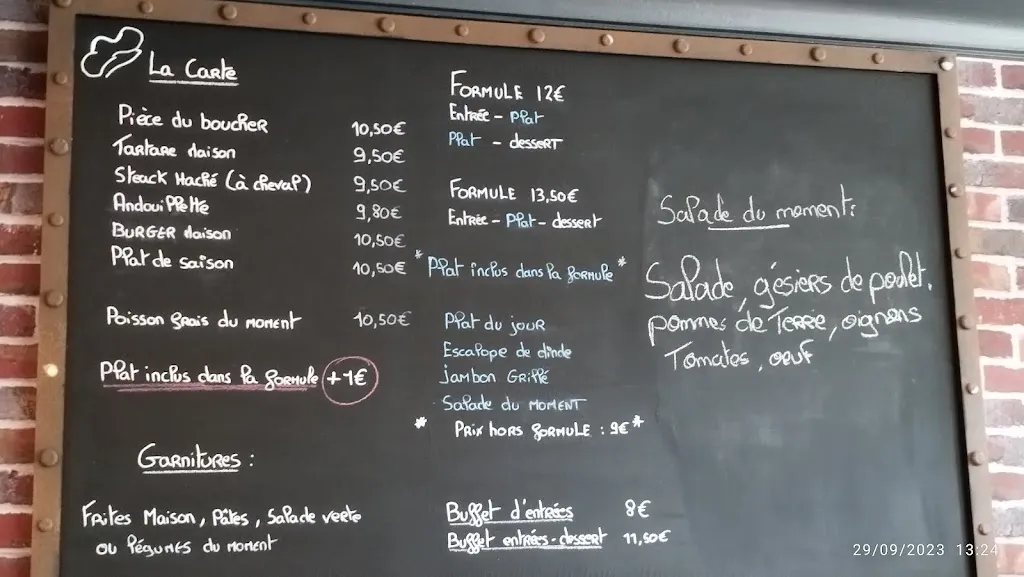 La Carte
Pièce du boucher 10,50€
Tartare Maison 9,50€
Steack Haché (à cheval) 9,50€
Andouillette 9,80€
BURGER Maison 10,50€
Plat de saison 10,50€
Poisson frais du moment 10,50€
Plat inclus dans la formule +1€
Garnitures :
Frites Maison, Pâtes, Salade verte
ou légumes du moment
FORMULE 12€
Entrée - Plat
Plat - dessert
FORMULE 13,50€
Entrée - Plat - dessert
* Plat inclus dans la formule *
Plat du jour
Escalope de dinde
Jambon Grillé
Salade du moment
* Prix hors formule : 9€ *
Buffet d'entrées 8€
Buffet entrées-dessert 11,50€
Salade du moment:
Salade, gésiers de poulet,
pommes de Terre, oignons
Tomates, oeuf
29/09/2023 13:24